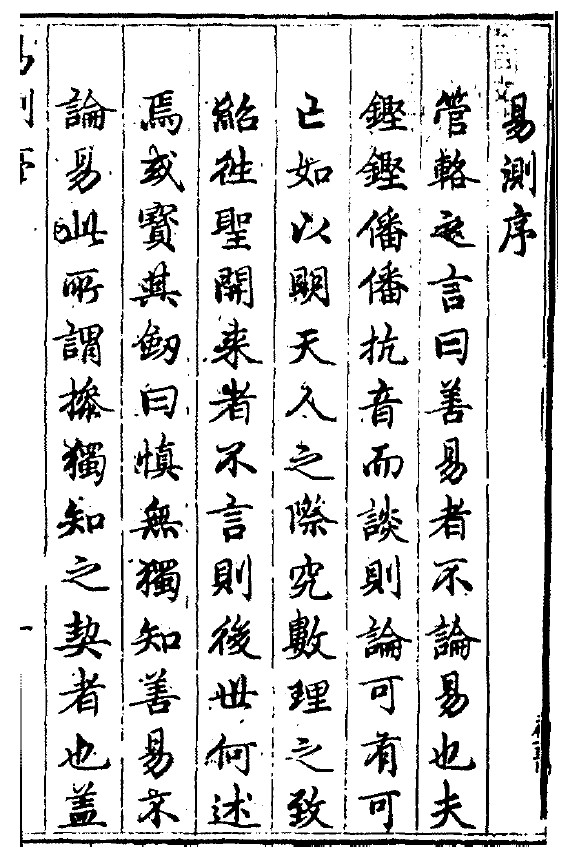 易測序
管輅之言曰善易者不論易也夫
鏗鏗僠僠抗音而談則論可有可
已如以明天人之際究數理之致
紹徃聖開来者不言則後世何述
焉或寶其劒曰慎無獨知善易不
論易此所謂操獨知之契者也蓋
易測序
一